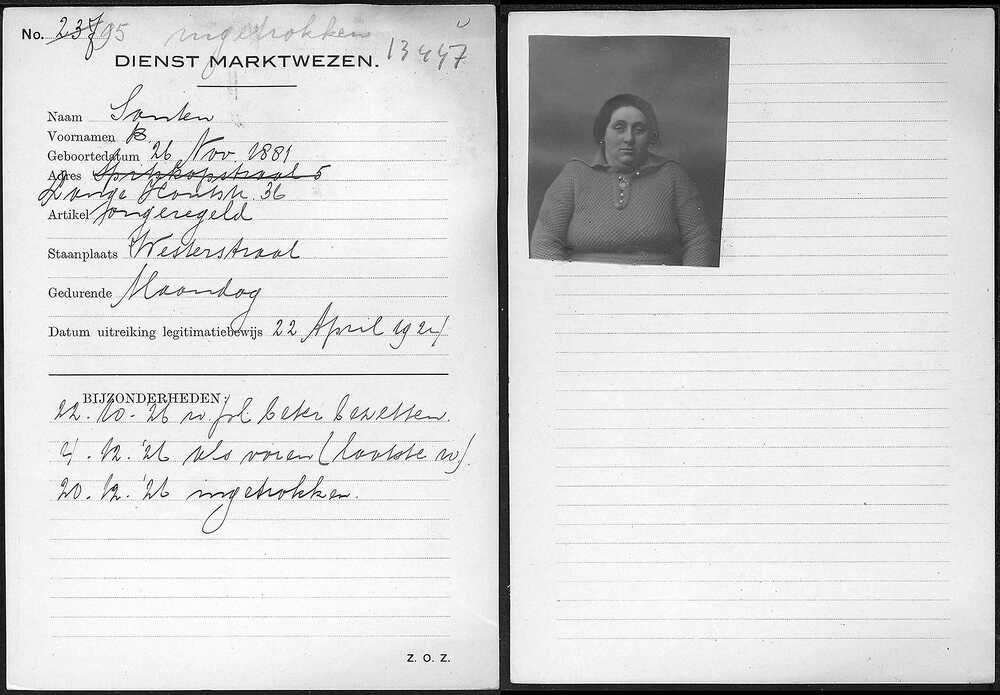 No. 23795 ingetrokken
13447
DIENST MARKTWEZEN.
Naam Santen
Voornamen B.
Geboortedatum 26 Nov. 1881
Adres Spitskopstraat 5
Lange Houtstr. 36
Artikel ongeregeld
Staanplaats Westerstraat
Gedurende Maandag
Datum uitreiking legitimatiebewijs 22 April 1924
BIJZONDERHEDEN:
22.10.'26 w. pl. beter bezetten.
4.12.'26 als voren (laatste w).
20.12.'26 ingetrokken.
Z. O. Z.